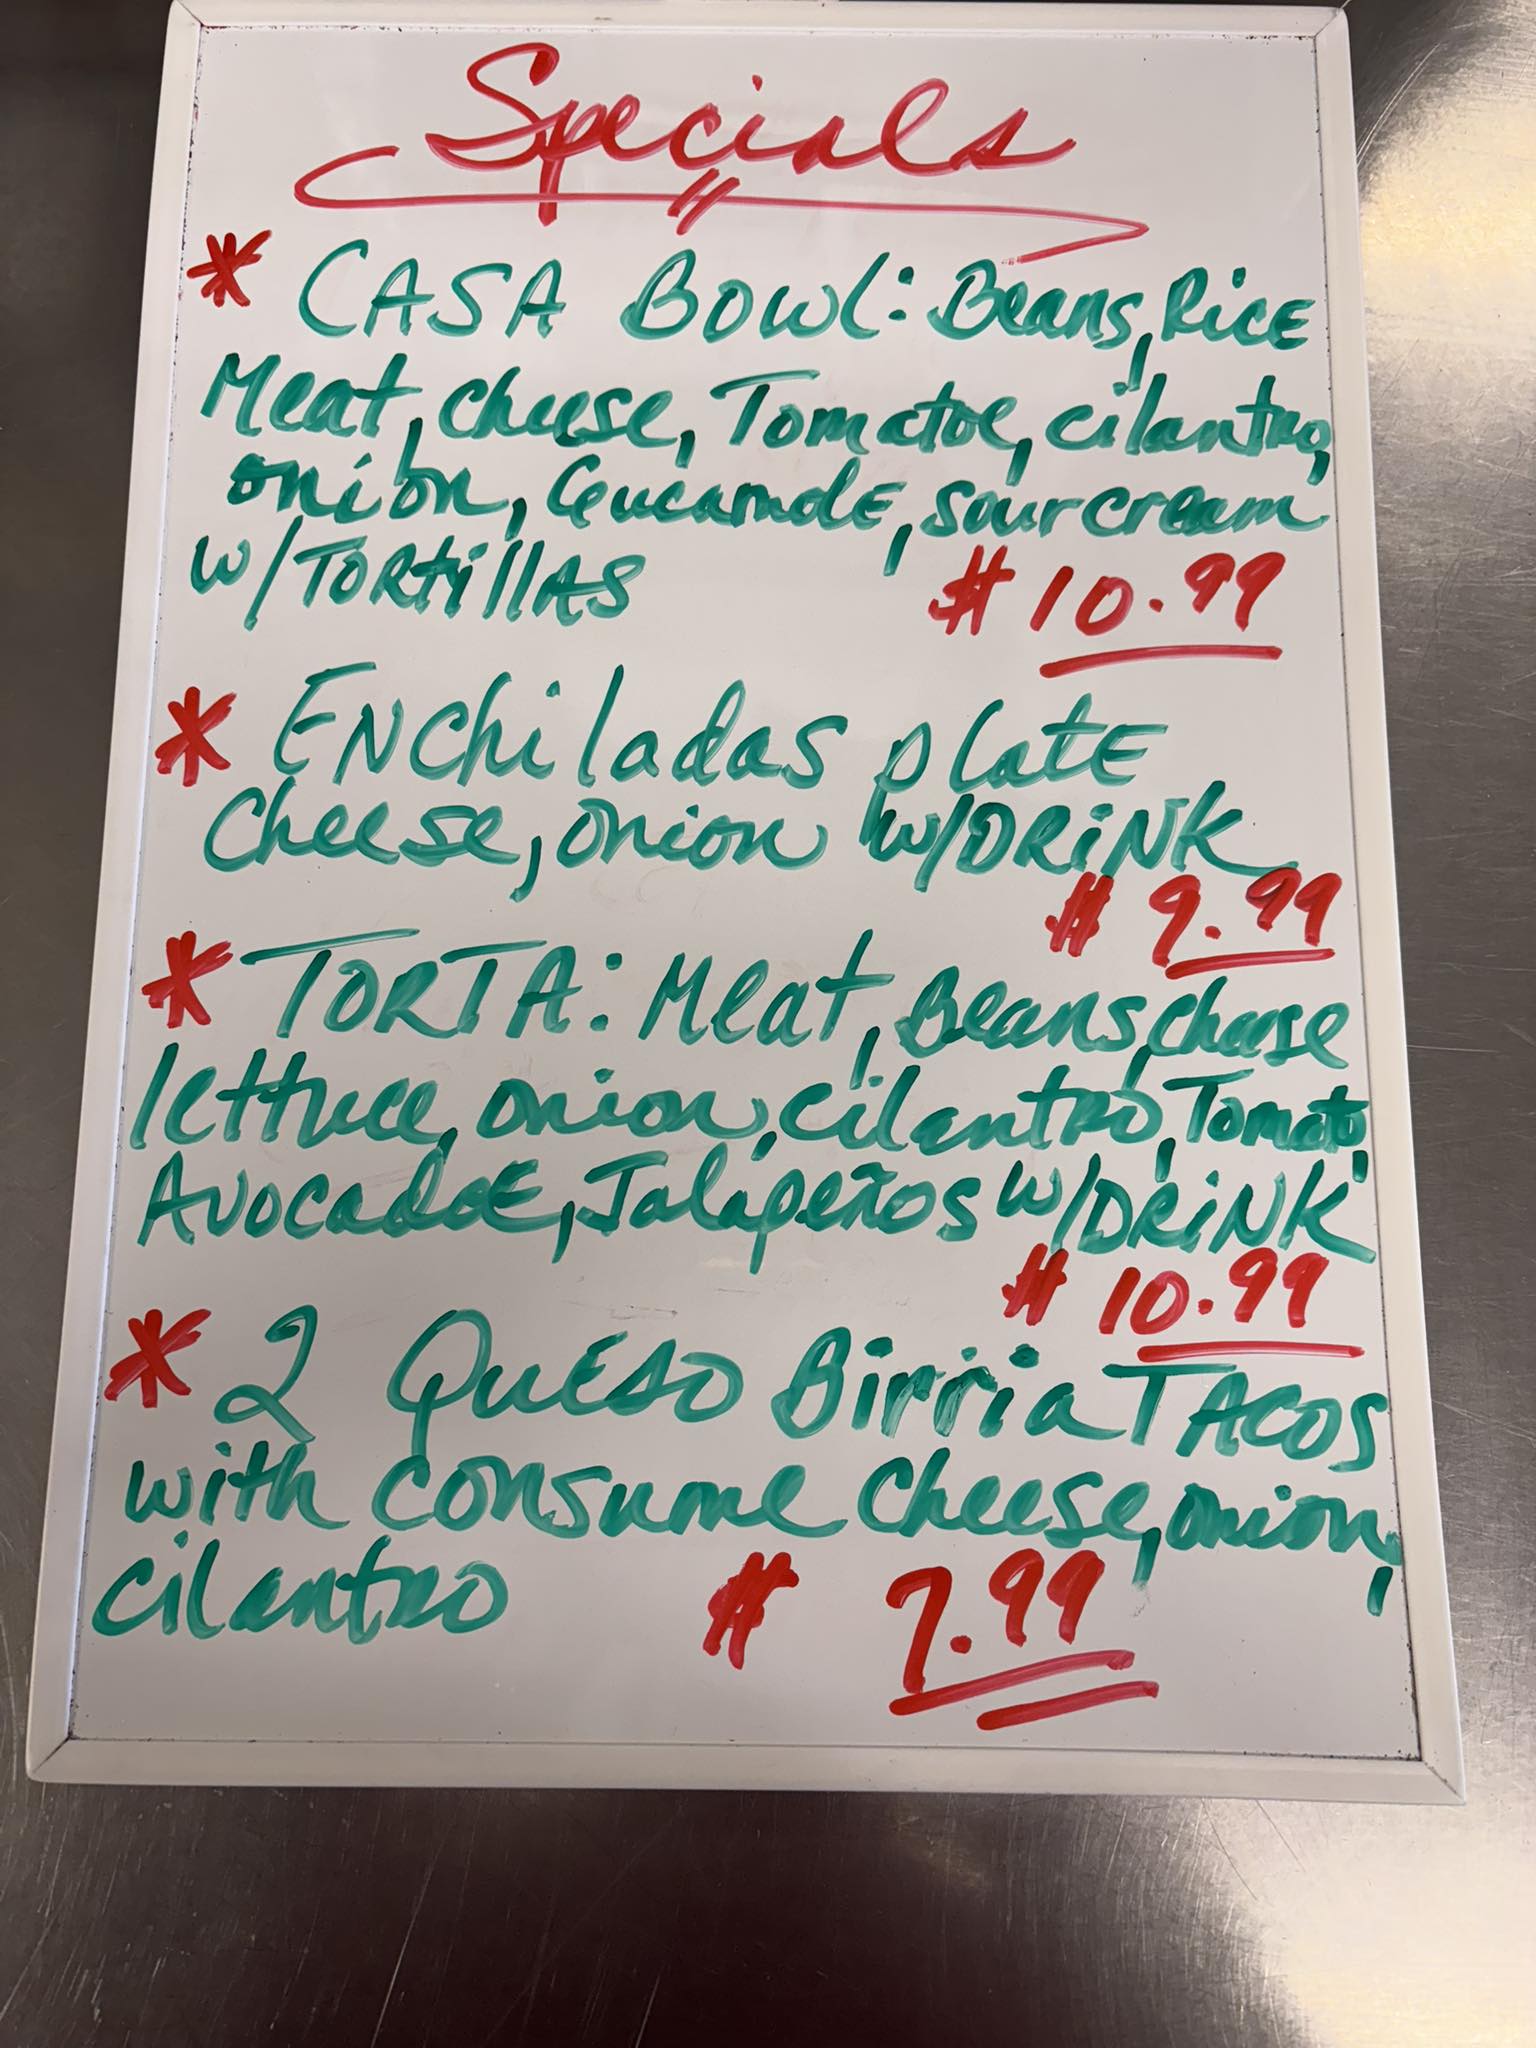 Specials
* CASA BOWL: Beans, Rice
Meat, cheese, Tomatoe, cilantro,
onion, Gucamole, sour cream
w/TORTillAS $10.99
* ENchiladas plate
Cheese, onion w/DRiNK
$9.99
* TORTA: Meat, Beans, cheese
lettuce, onion, cilantro, Tomato,
Avocadoe, Jalapeños w/DRiNK
$10.99
* 2 QuESO Birria TACOS
with consume cheese, onion,
cilantro $7.99